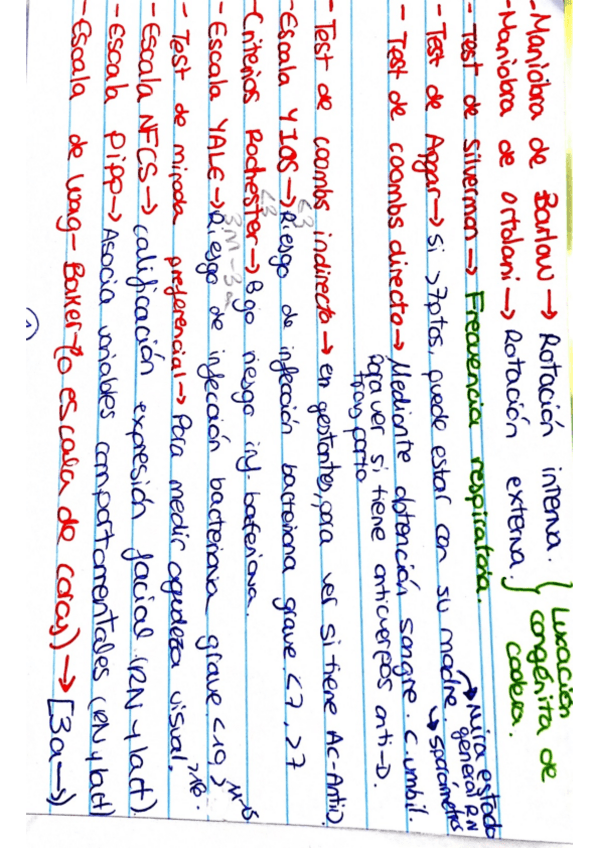 - Maniobra de Barlow → Rotación interna. } Luxación congénita de cadera.
- Maniobra de Ortolani → Rotación externa.
- Test de Silverman → Frecuencia respiratoria.
- Test de Apgar → si >7ptos, puede estar con su madre → Mira estado general RN → 5parámetros
- Test de coombs directo → Mediante obtención sangre. C. umbil.
Para ver si tiene anticuerpos anti-D.
tras parto
- Test de coombs indirecto → en gestantes, para ver si tiene Ac-AntiD.
- Escala YIOS → Riesgo de infección bacteriana grave. <7, >7
<3
- Criterios Rochester → Bajo riesgo inf. bacteriana.
<3
- Escala YALE → Riesgo de infección bacteriana grave. <10
3m - 3a
>16.
- Test de mirada preferencial → Para medir agudeza visual.
- Escala NFCS → calificación expresión facial. (RN y lact).
- Escala PIPP → Asocia variables comportamentales (RN y lact)
- Escala de Wong-Baker → (o escala de caras) → [3a →)